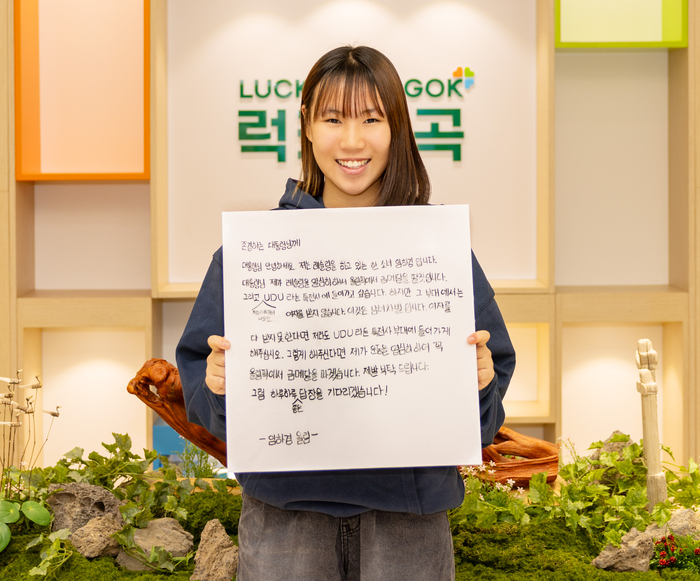 LUCK GOK
럭 곡
존경하는 대통령님께
대통령님 안녕하세요. 저는 레슬링을 하고 있는 한 소녀 임하경 입니다.
대통령님 제가 레슬링을 열심히 해서 올림픽에서 금메달을 땄습니다.
그리고 UDU 라는 특전사에 들어가고 싶습니다. 하지만 그 부대에서는
여자를 받지 않습니다. 이것은 남녀차별 입니다. 여자를
다 받지 못 한다면 저라도 UDU 라는 특전사 부대에 들어가게
해주십시오. 그렇게 해주신다면 제가 운동을 열심히 하여 꼭
올림픽에서 금메달을 따겠습니다. 제발 부탁 드립니다.
그럼 하루하루 답장을 기다리겠습니다!
좋은
-임하경 올림-